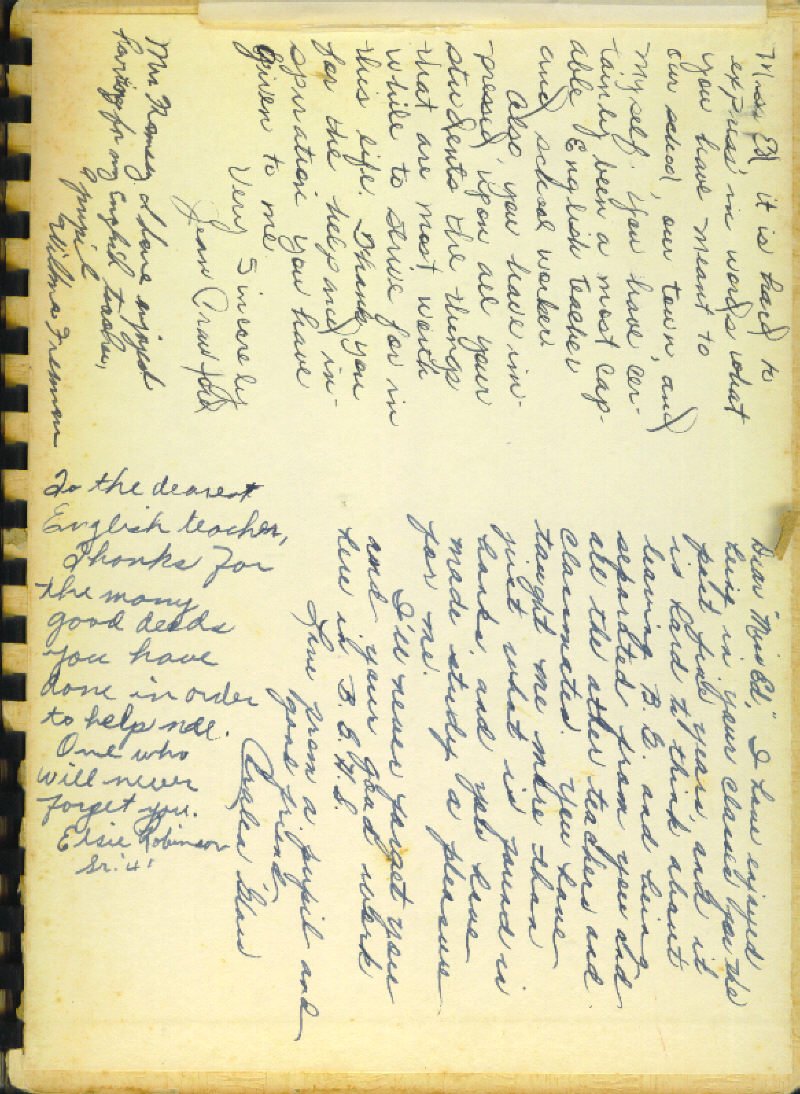 "Miss Ed", it is hard to
express in words what
you have meant to
our school, our town, and
myself. You have cer-
tainly been a most cap-
able English teacher
and school worker
Also, you have im-
pressed upon all your
students the things
that are most worth
while to strive for in
this life. Thank you
for the help and in-
spiration you have
given to me
Very Sincerely
Jean Crawford
Mrs Ramsey I have enjoyed
having for my English teacher,
a pupil
Wilma Freeman
Dear "Miss Ed," I have enjoyed
being in your classes for the
past five years, and it
is hard to think about
leaving B.E. and being
separated from you and
all the other teachers and
classmates. You have
taught me more than
just what is found in
books and you have
made study a pleasure
for me.
I'll never forget you
and your good work
here in B.E.H.S.
Love from a pupil and
good friend
To the dearest
English teacher,
Thanks for
the many
good deeds
you have
done in order
to help me.
One who
will never
forget you.
Elsie Robinson
Sr. '41